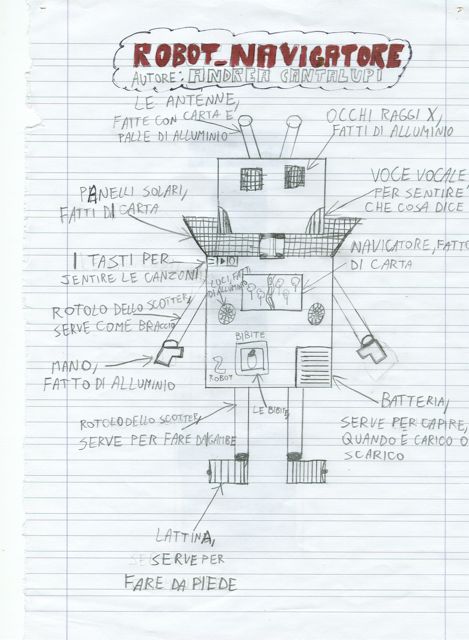 ROBOT_NAVIGATORE
AUTORE: ANDREA CANTALUPI
LE ANTENNE,
FATTE CON CARTA E
PALLE DI ALLUMINIO
OCCHI RAGGI X,
FATTI DI ALLUMINIO
PANELLI SOLARI,
FATTI DI CARTA
VOCE VOCALE
PER SENTIRE
CHE COSA DICE
I TASTI PER
SENTIRE LE CANZONI
NAVIGATORE, FATTO
DI CARTA
LUCI, FATTI
DI ALLUMINIO
ROTOLO DELLO SCOTTEX,
SERVE COME BRACCIO
MANO,
FATTO DI ALLUMINIO
BIBITE
ROBOT
LE BIBITE
BATTERIA,
SERVE PER CAPIRE,
QUANDO È CARICO O
SCARICO
ROTOLO DELLO SCOTTEX,
SERVE PER FARE DA GAMBE
LATTINA,
SERVE PER
FARE DA PIEDE